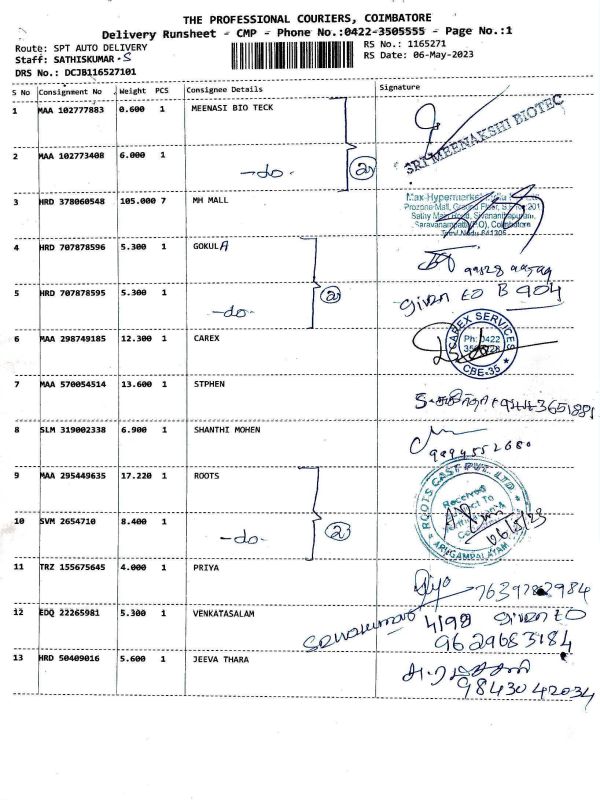 THE PROFESSIONAL COURIERS, COIMBATORE
Delivery Runsheet - CMP - Phone No.:0422-3505555 - Page No.:1
Route: SPT AUTO DELIVERY
RS No.: 1165271
Staff: SATHISKUMAR-S
RS Date: 06-May-2023
DRS No.: DCJB116527101
S No Consignment No Weight PCS Consignee Details Signature
1 MAA 102777883 0.600 1 MEENASI BIO TECK
SRI MEENAKSHI BIOTEC
2 MAA 102773408 6.000 1 -do- 2
3 HRD 378060548 105.000 7 MH MALL
Prozone Mall, Ground Floor,
Sathy Main Road, Sivanandhapuram,
Saravanampatti(P.O), Coimbatore
4 HRD 707878596 5.300 1 GOKULA
5 HRD 707878595 5.300 1 -do- 2
Given to B 904
6 MAA 298749185 12.300 1 CAREX
CAREX SERVICES
Ph: 0422
CBE-35
7 MAA 570054514 13.600 1 STPHEN
8 SLM 319002338 6.900 1 SHANTHI MOHEN
9994552680
9 MAA 295449635 17.220 1 ROOTS
ROOTS CAST PVT. LTD
Received
10 SVM 2654710 8.400 1 -do- 2
06/5/23
ARUGAMPALAYAM
11 TRZ 155675645 4.000 1 PRIYA
Priya 7639782984
12 EDQ 22265981 5.300 1 VENKATASALAM
4198 Given to
9629683184
13 HRD 50409016 5.600 1 JEEVA THARA
9843042034